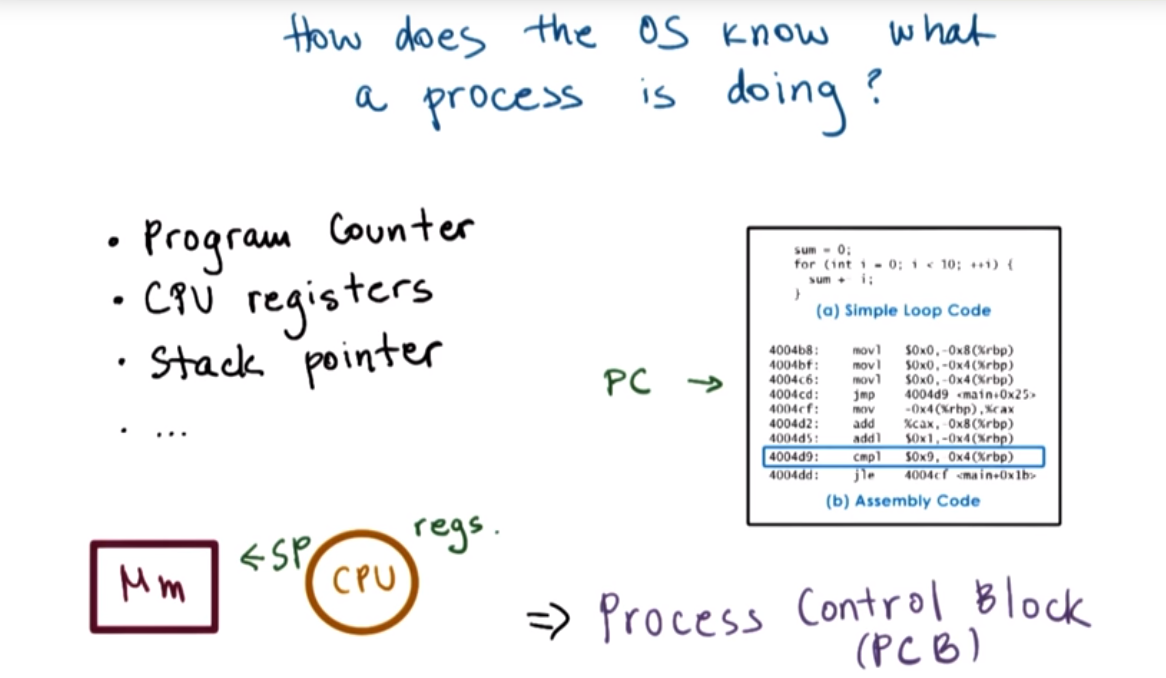 How does the OS know what
a process is doing?
• Program Counter
• CPU registers
• Stack pointer
• ...
PC →
sum = 0;
for (int i = 0; i < 10; ++i) {
sum + i;
}
(a) Simple Loop Code
4004b8: movl $0x0,-0x8(%rbp)
4004bf: movl $0x0,-0x4(%rbp)
4004c6: movl $0x0,-0x4(%rbp)
4004cd: jmp 4004d9 <main+0x25>
4004cf: mov -0x4(%rbp),%cax
4004d2: add %cax, 0x8(%rbp)
4004d5: addl $0x1,-0x4(%rbp)
4004d9: cmpl $0x9, 0x4(%rbp)
4004dd: jle 4004cf <main+0x1b>
(b) Assembly Code
Mm
←SP
CPU
regs.
⇒ Process Control Block
(PCB)